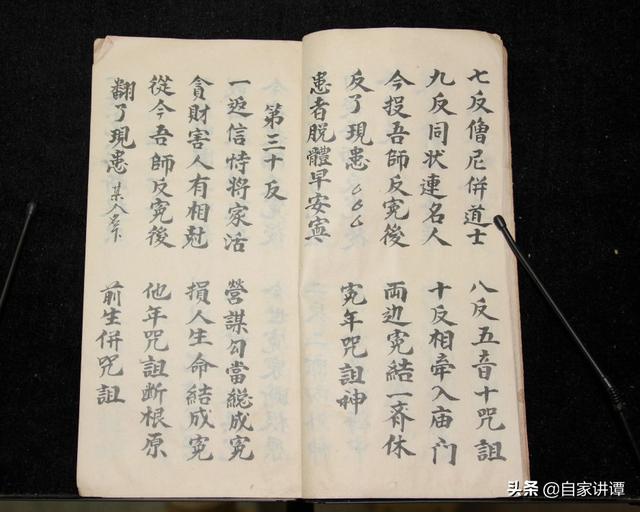 七反僧尼併道士 八反五音十咒詛
九反同状連名人 十反相牽入庙门
今投吾師反寃後 両边寃結一斉休
反了現患 寃年咒詛神
患者脱體早安寧
第三十反
一返信恃將家活 營謀勾當総成寃
貪財害人有相尅 損人生命結成寃
從今吾師反寃後 他年咒詛断根原
翻了現患某人名下 前生併咒詛
头条 @自家讲谭